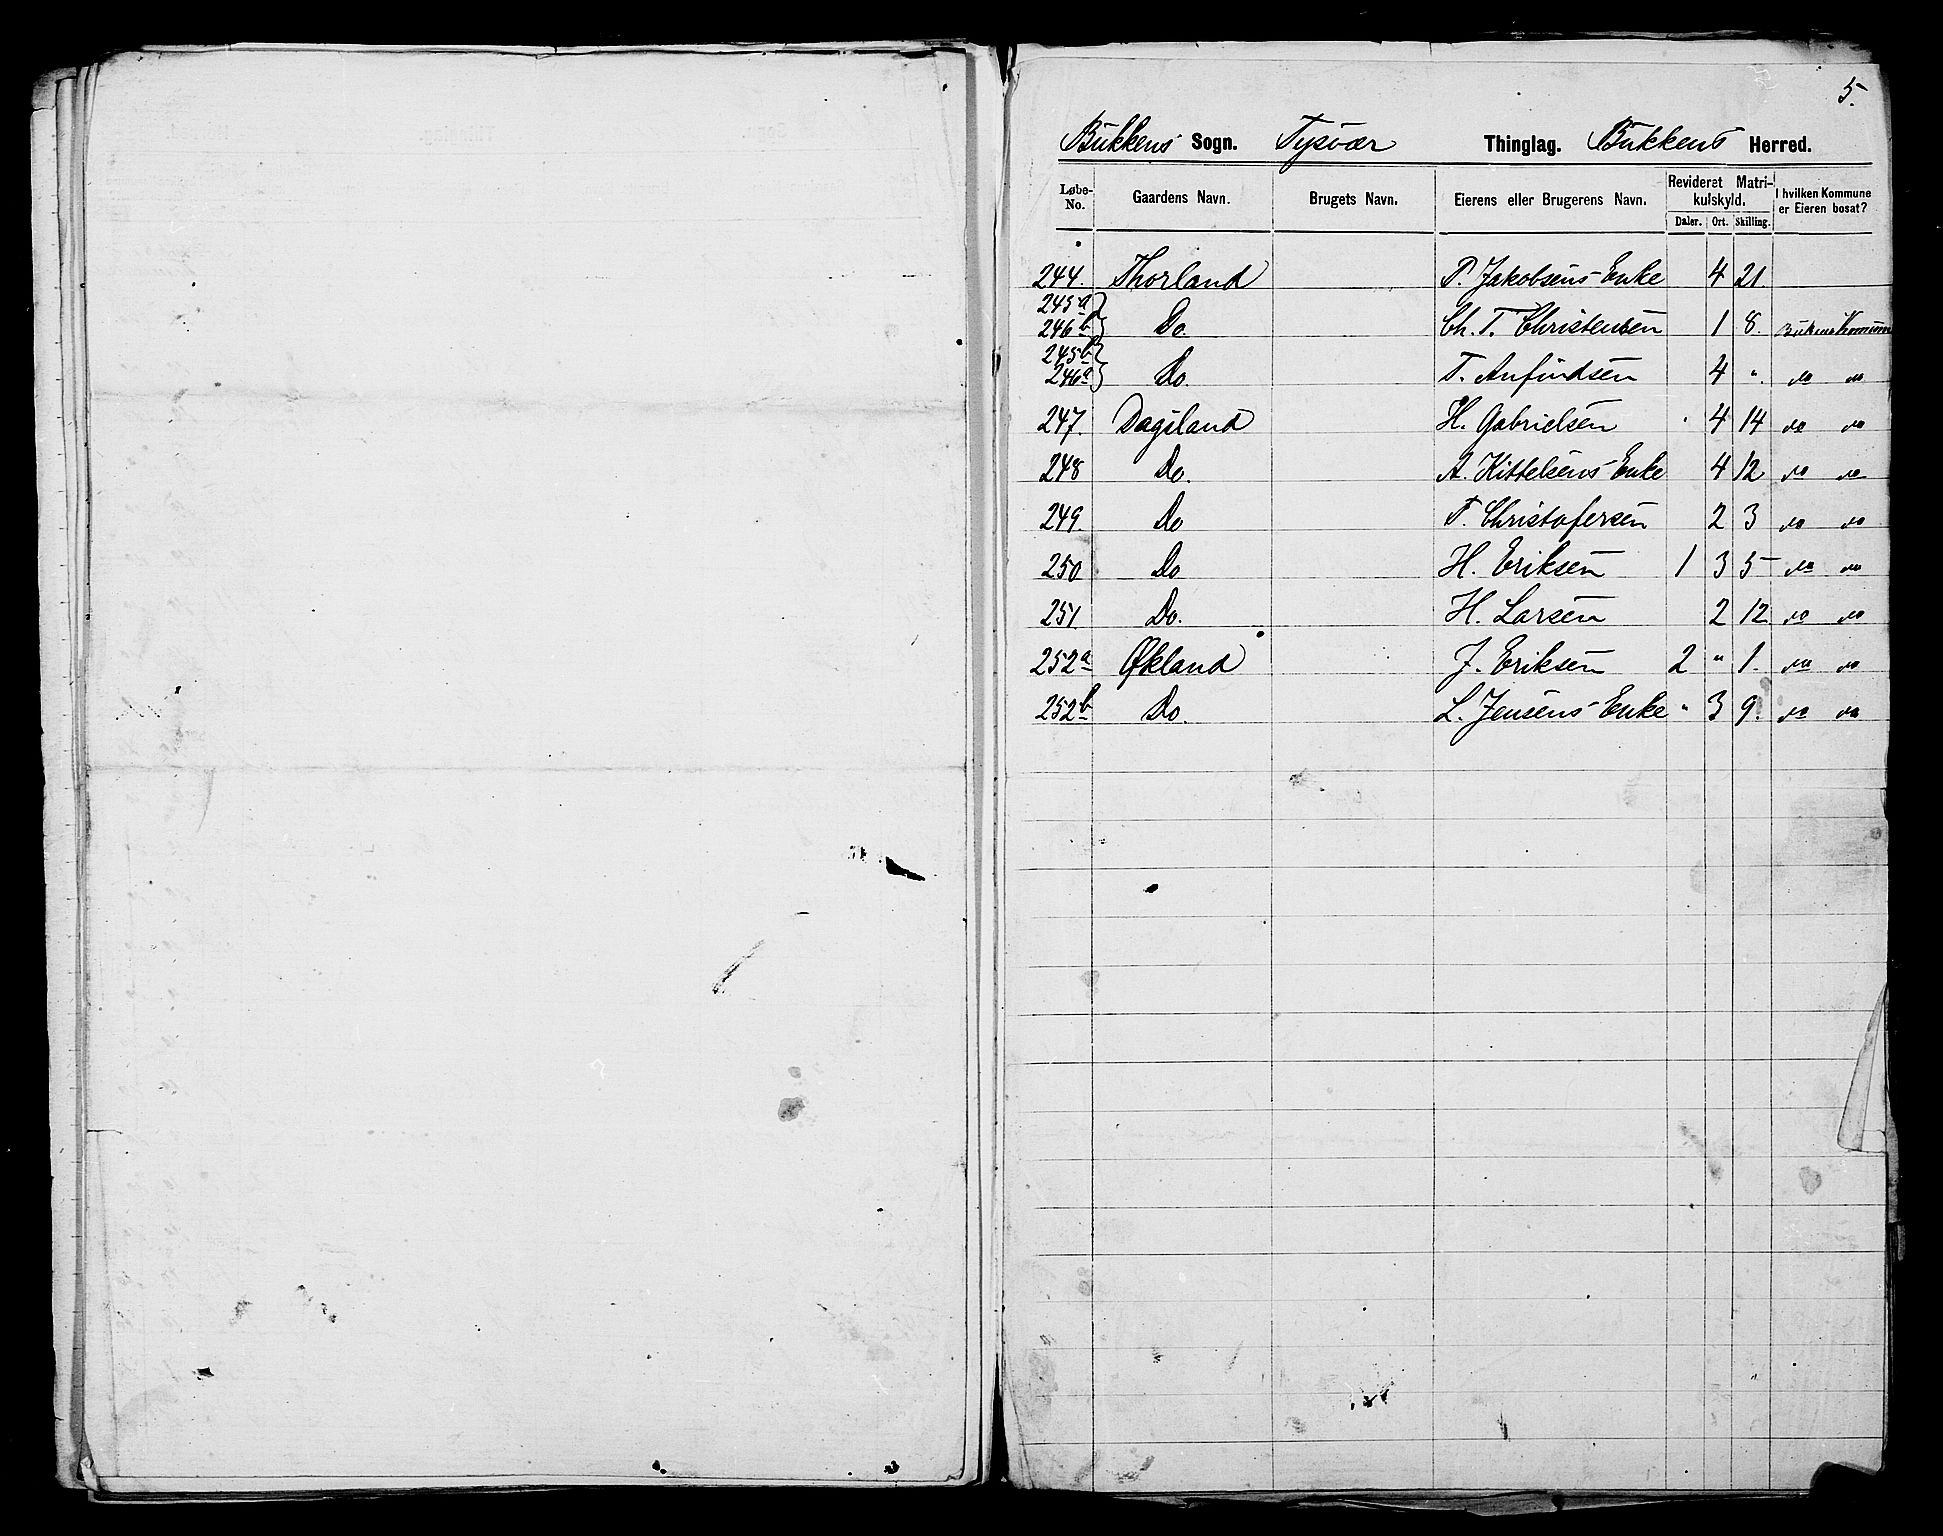 5.
Bukkens Sogn. Tysvær Thinglag. Bukkens Herred.
Løbe-No. Gaardens Navn. Brugets Navn. Eierens eller Brugerens Navn. Revideret Matrikulskyld. I hvilken Kommune er Eieren bosat?
Daler. Ort. Skilling.
244. Thorland P. Jakobsens Enke 4 21.
245a
246b } Do. Ch. T. Christensen 1 8. Bukens Kommune
245b
246a } Do. T. Anfindsen 4 ". do do
247. Dagsland H. Gabrielsen 4 14 do do
248 Do. A. Kittelsens Enke 4 12 do do
249. Do T. Christofersen 2 3 do do
250 Do H. Eriksen 1 3 5 do do
251. Do. H. Larsen 2 12 do do
252a Økland J. Eriksen 2 " 1. do do
252b Do. L. Jensens Enke " 3 9. do do